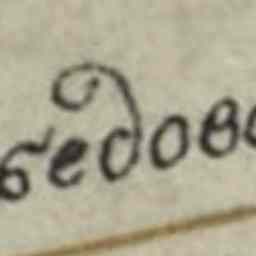 бедов